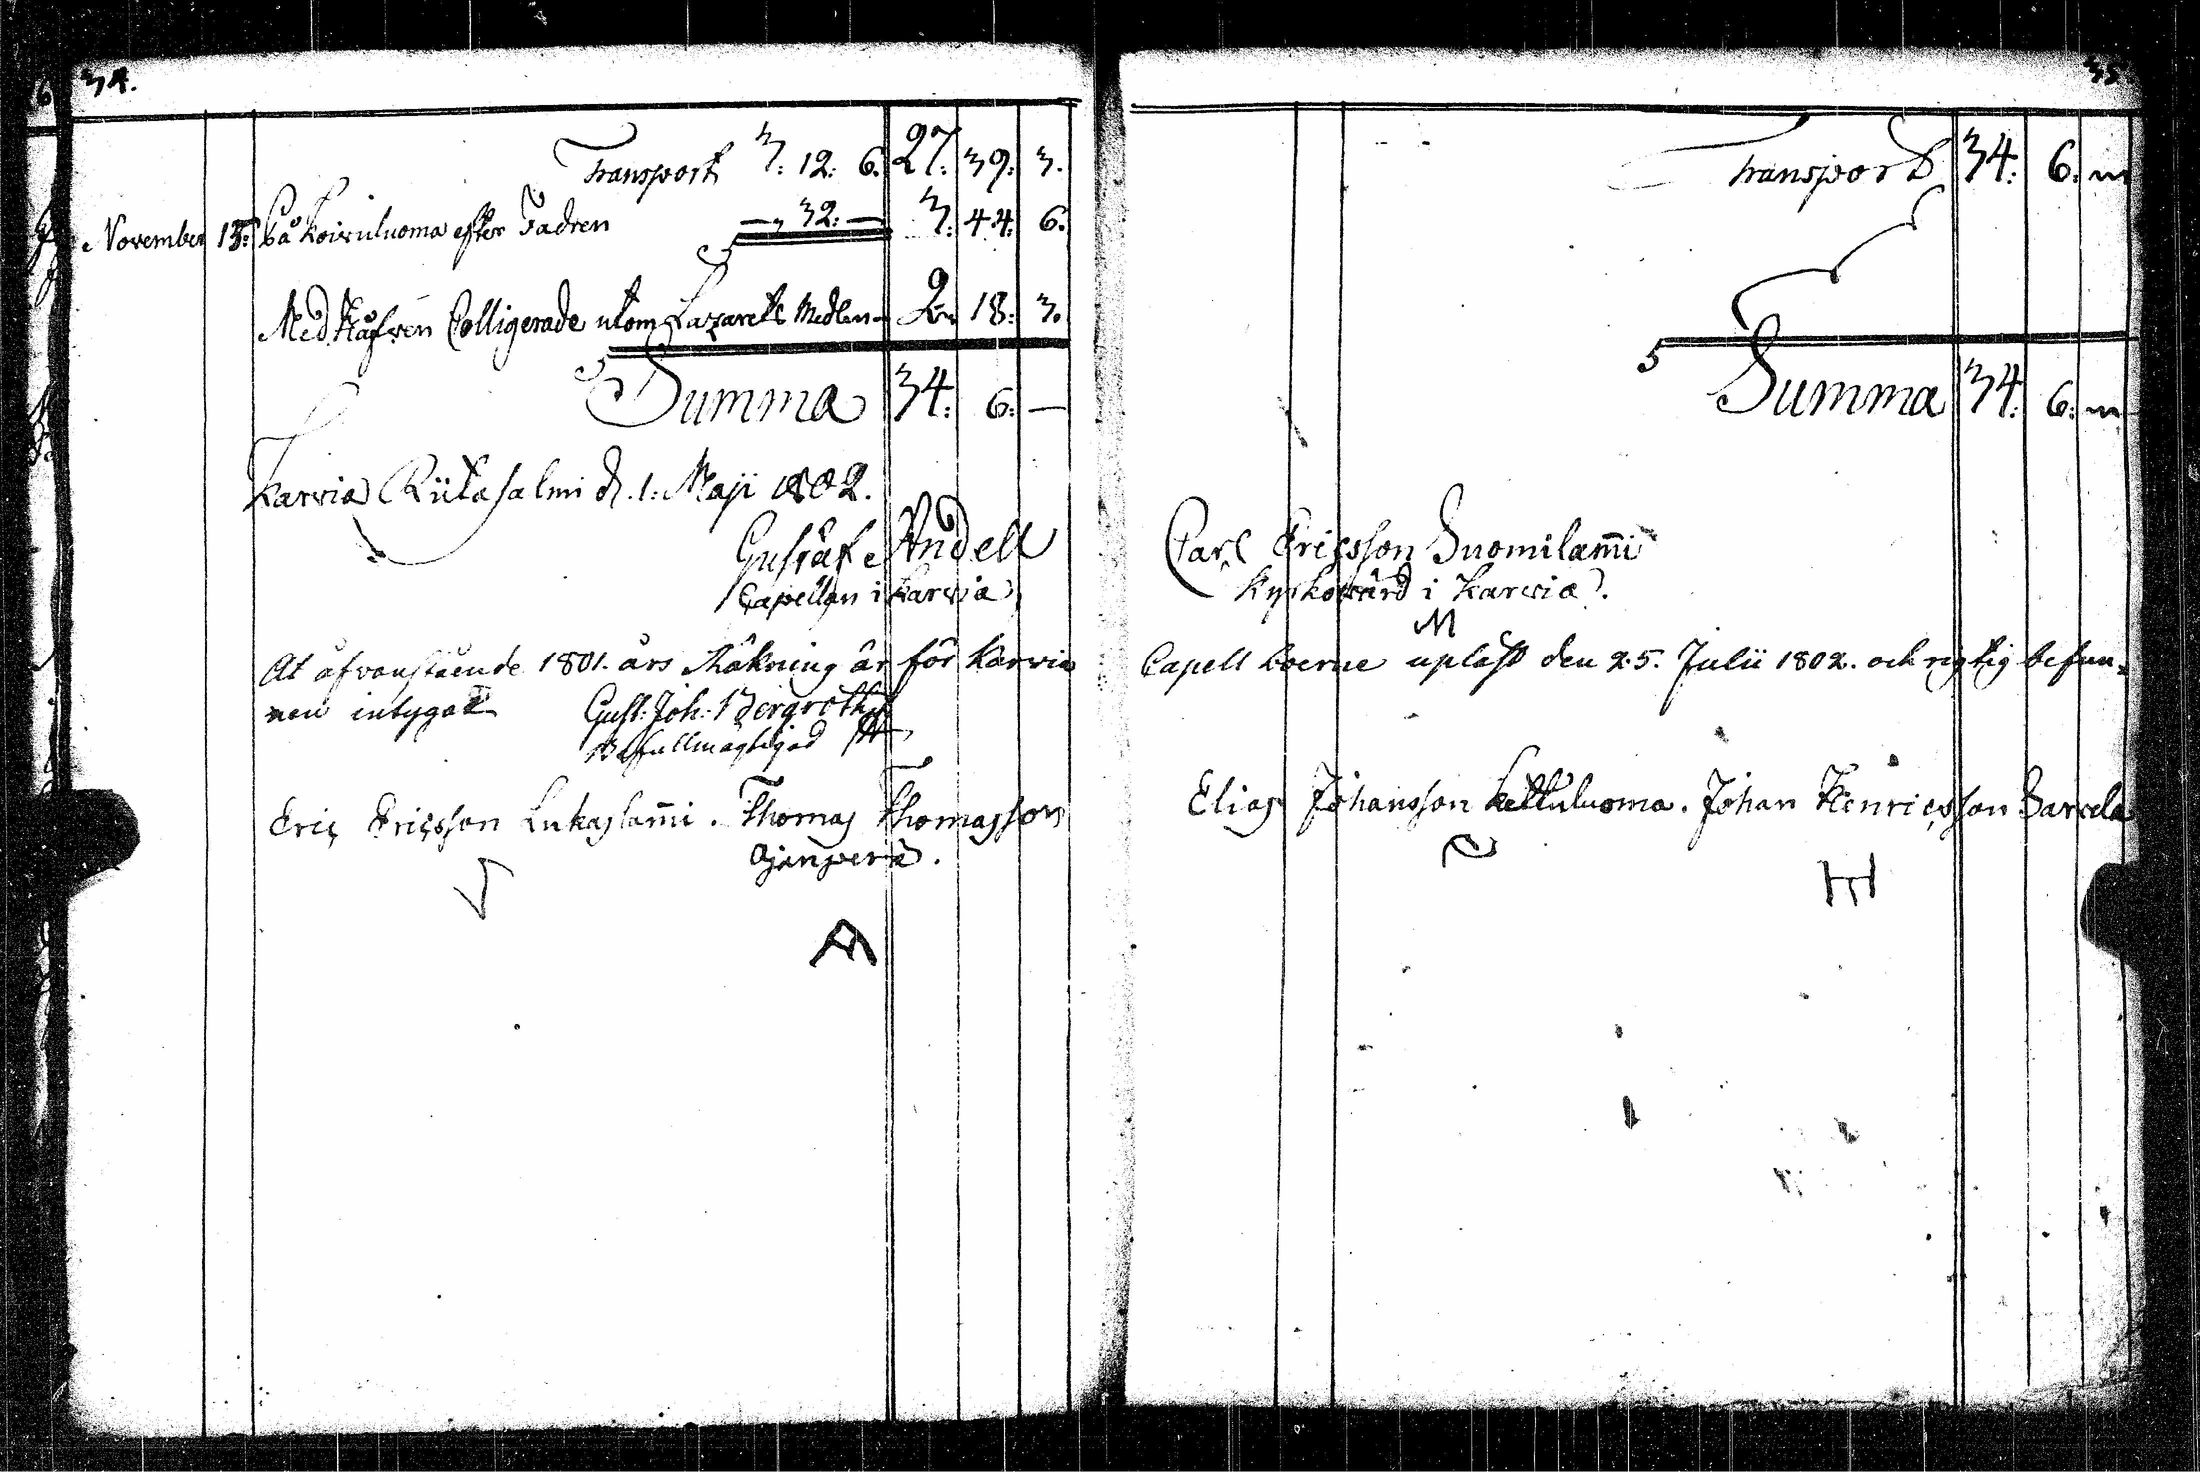 34.
Transport 3: 12: 6. 27: 39: 3.
November 15: På Koivuluoma efter Fadren — „ 32: — 3: 44: 6.
Med Håfven Colligerade utom Lazarets Medlen — 2„ 18: 3.
Summa 34: 6: —
Karvia Riitasalmi d. 1: Maji 1802.
Gustaf Andell
Capellan i Karvia
At åfvanstående 1801. års Räkning är för Karvia
nen intygar Gust: Joh: Bergroth
Befullmägtigad
Eric Ericsson Lukaslam̄i. Thomas Thomasson
Ojanperä.
35
Transport 34: 6: „
Summa 34: 6: „
Carl Ericsson Suomilam̄i
Kyrkovärd i Karvia.
M
Capell boerne upläst den 25. Julii 1802. och rigtig befun-
Elias Johansson Kettuluoma. Johan Henricsson Sarvela